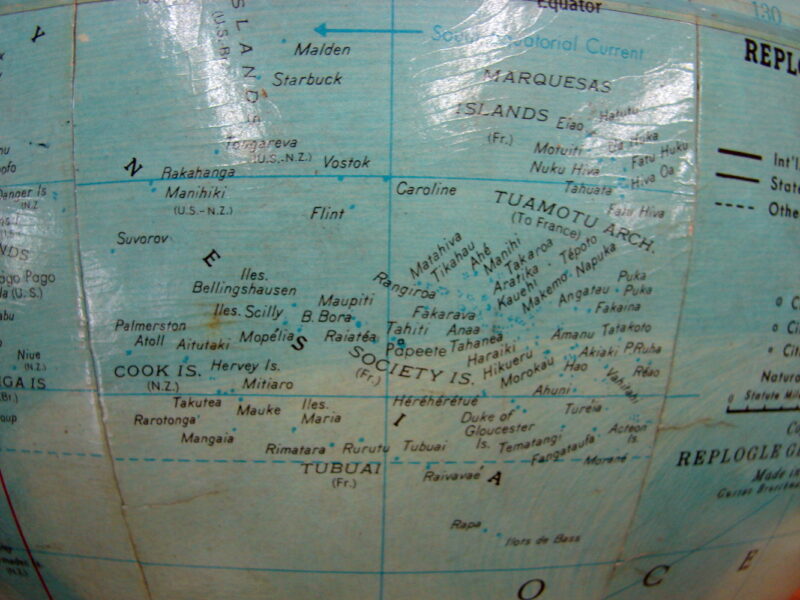 Equator
130
ISLANDS
South Equatorial Current
Malden
Starbuck
(U.S.-Br.)
MARQUESAS
ISLANDS
(Fr.)
Eiao
Hatutu
Motuiti
Ua Huka
Nuku Hiva
Fatu Huku
Tahuata
Hiva Oa
Fatu Hiva
REPLO
Int'l
State
Othe
Tongareva
(U.S.-N.Z.)
Vostok
Rakahanga
Manihiki
(U.S.-N.Z.)
Caroline
Flint
Suvorov
TUAMOTU ARCH.
(To France)
Matahiva
Tikahau
Ahé
Manihi
Takaroa
Aratika
Tépoto
Kauehi
Makemo
Napuka
Rangiroa
Fakarava
Angatau
Puka
Puka
Fakaina
Iles.
Bellingshausen
Iles. Scilly
Maupiti
B. Bora
Palmerston
Atoll
Aitutaki
Mopélia
Raiatéa
Tahiti
Anaa
Papeete
Tahanea
Haraiki
Hikueru
Morokau
Amanu
Tatakoto
Hao
Akiaki
P.Ruha
Réao
Vahitahi
SOCIETY IS.
(Fr.)
COOK IS.
(N.Z.)
Hervey Is.
Mitiaro
Takutea
Mauke
Iles.
Maria
Rarotonga
Mangaia
Rimatara
Rurutu
Tubuai
TUBUAI
(Fr.)
Raivavaé
Héréhérétué
Ahuni
Duke of
Gloucester
Is.
Turéia
Tematangi
Fangataufa
Acteon
Is.
Morane
Rapa
Ilots de Bass
Danger Is
(N.Z.
NDS
ago Pago
(U.S.)
Niue
(N.Z.)
GA IS
Br.)
oup
(N.Z.)
Y
N
E
S
I
A
O C E
Natura
Statute Mil
0
REPLOGLE GL
Made in